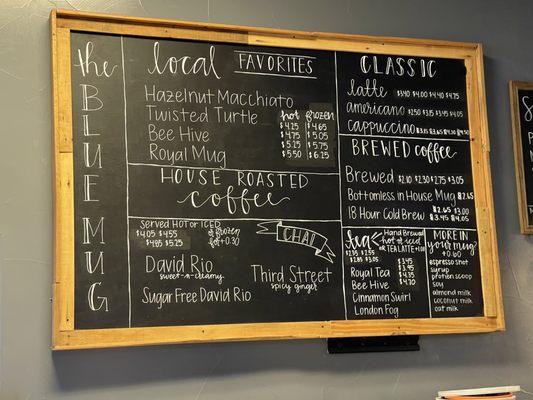 the
BLUE
MUG
local FAVORITES
Hazelnut Macchiato
Twisted Turtle
Bee Hive
Royal Mug
hot frozen
$4.25 $4.65
$4.75 $5.05
$5.25 $5.75
$5.50 $6.25
HOUSE ROASTED
coffee
SERVED HOT or ICED
$4.05 $4.55
$4.85 $5.25
or frozen
for +0.30
CHAI
David Rio
sweet-n-creamy
Sugar Free David Rio
Third Street
spicy ginger
CLASSIC
latte $3.40 $3.90 $4.40 $4.75
americano $2.50 $3.15 $3.45 $4.05
cappuccino $3.15 $3.65 $4.30 $4.50
BREWED coffee
Brewed $2.10 $2.30 $2.75 $3.05
Bottomless in House Mug $2.65
18 Hour Cold Brew $2.65 $3.00
$3.45 $4.05
tea
Hand Brewed
hot or iced
or TEA LATTE +1.00
$2.35 $2.55
$2.85 $3.05
Royal Tea
Bee Hive
Cinnamon Swirl
London Fog
$3.45
$3.95
$4.35
$4.70
MORE IN
your mug
+0.60
espresso shot
syrup
protein scoop
soy
almond milk
coconut milk
oat milk